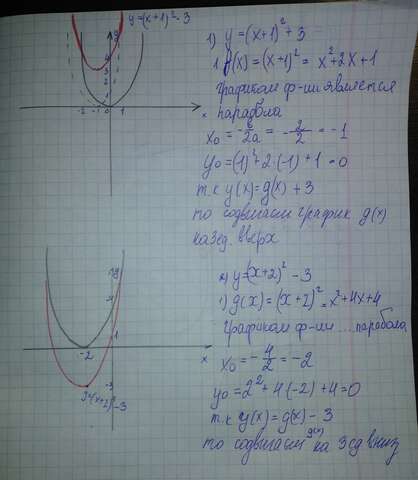 y=(x+1)²-3
y
4
3
2
1
-2 -1 0 1
x
1) y=(x+1)²+3
1. g(x)=(x+1)²= x²+2x+1
графиком ф-ии является
парабола
x₀ = -b/2a = -2/2 = -1
y₀=(1)²+2·(-1)+1=0
т.к y(x)=g(x)+3
то сдвигаем график g(x)
на 3 ед. вверх
y
1
-2
x
-3
y=(x+2)²-3
2) y=(x+2)²-3
1) g(x)=(x+2)²=x²+4x+4
Графиком ф-ии ... парабола
x₀=-4/2=-2
y₀=2²+4(-2)+4=0
т.к y(x)=g(x)-3
то сдвигаем g(x) на 3 ед вниз